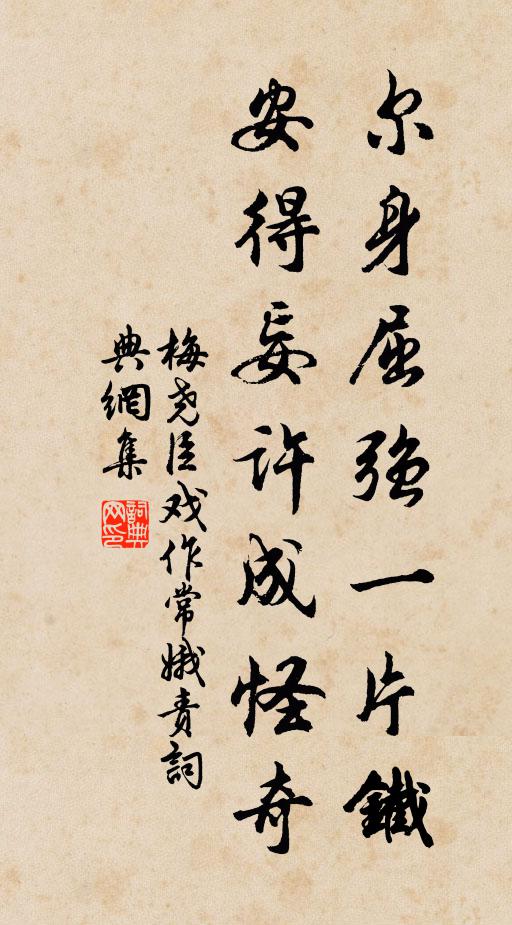 尔身屈強一片鐵
安得妄許成怪奇
梅尧臣戏作常娥责詞
典網集
詞典网印